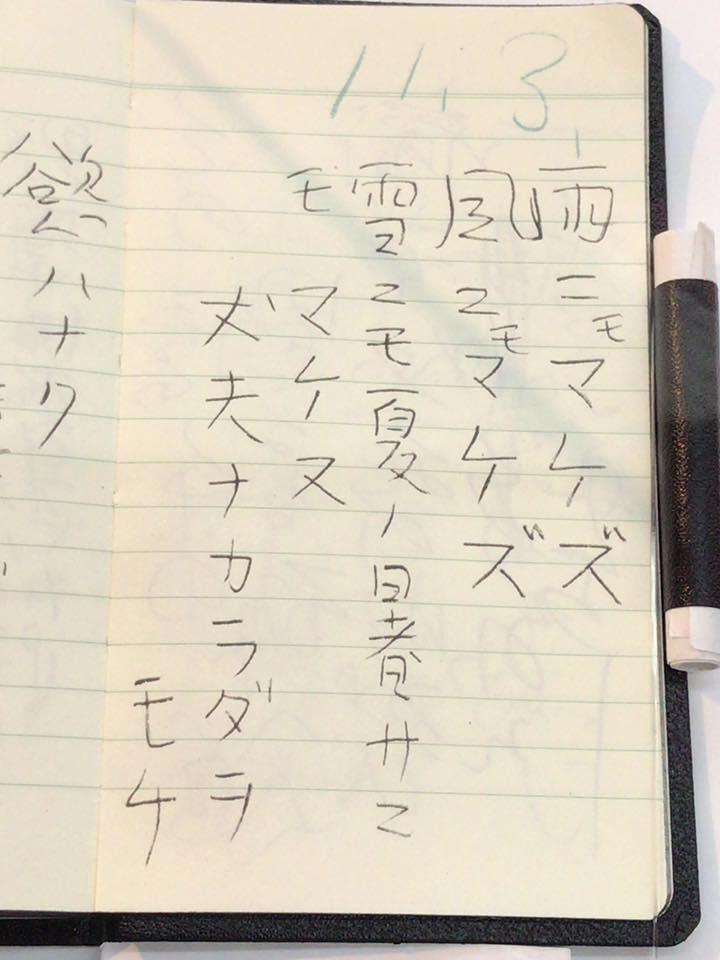 11.3.
雨ニモマケズ
風ニモマケズ
雪ニモ夏ノ暑サニ
モマケヌ
丈夫ナカラダヲ
モチ
慾ハナク